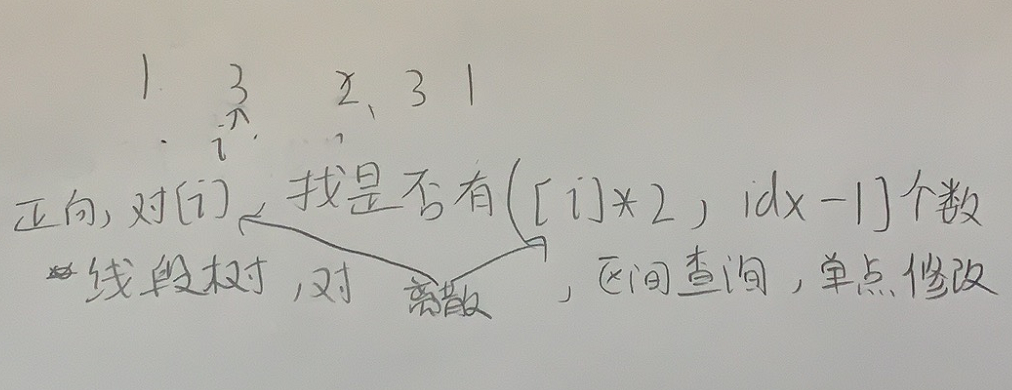 1 3 2、3 1
i
正向,对[i],找是否有([i]*2,idx-1]个数
*线段树,对离散,区间查询,单点修改